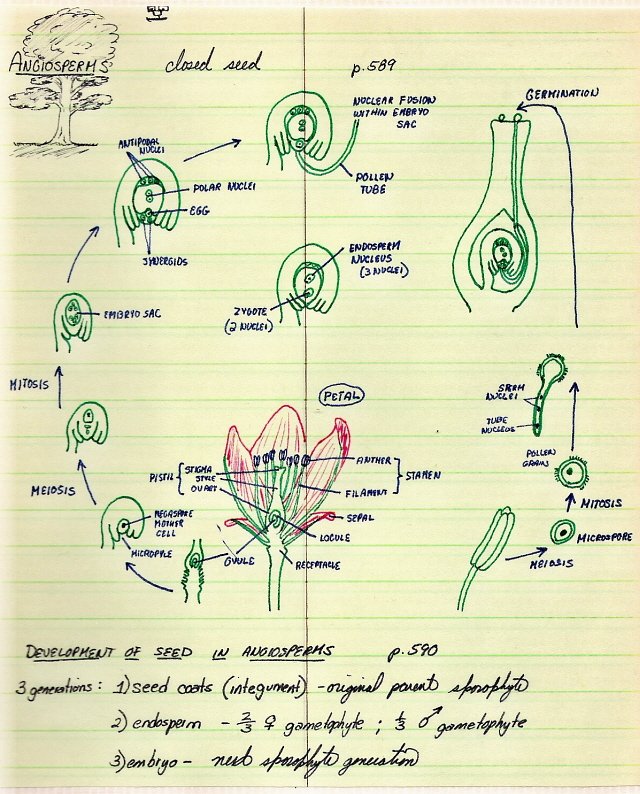 ANGIOSPERMS closed seed p.589
GERMINATION
NUCLEAR FUSION
WITHIN EMBRYO
SAC
ANTIPODAL
NUCLEI
POLLEN
TUBE
POLAR NUCLEI
EGG
SYNERGIDS
ENDOSPERM
NUCLEUS
(3 NUCLEI)
ZYGOTE
(2 NUCLEI)
EMBRYO SAC
MITOSIS
PETAL
SPERM
NUCLEI
TUBE
NUCLEUS
POLLEN
GRAIN
ANTHER
STAMEN
FILAMENT
PISTIL
STIGMA
STYLE
OVARY
MEIOSIS
MEGASPORE
MOTHER
CELL
MICROPYLE
SEPAL
LOCULE
OVULE
RECEPTACLE
MITOSIS
MICROSPORE
MEIOSIS
DEVELOPMENT OF SEED IN ANGIOSPERMS p.590
3 generations: 1) seed coats (integument) - original parent sporophyte
2) endosperm - 2/3 ♀ gametophyte ; 1/3 ♂ gametophyte
3) embryo - next sporophyte generation